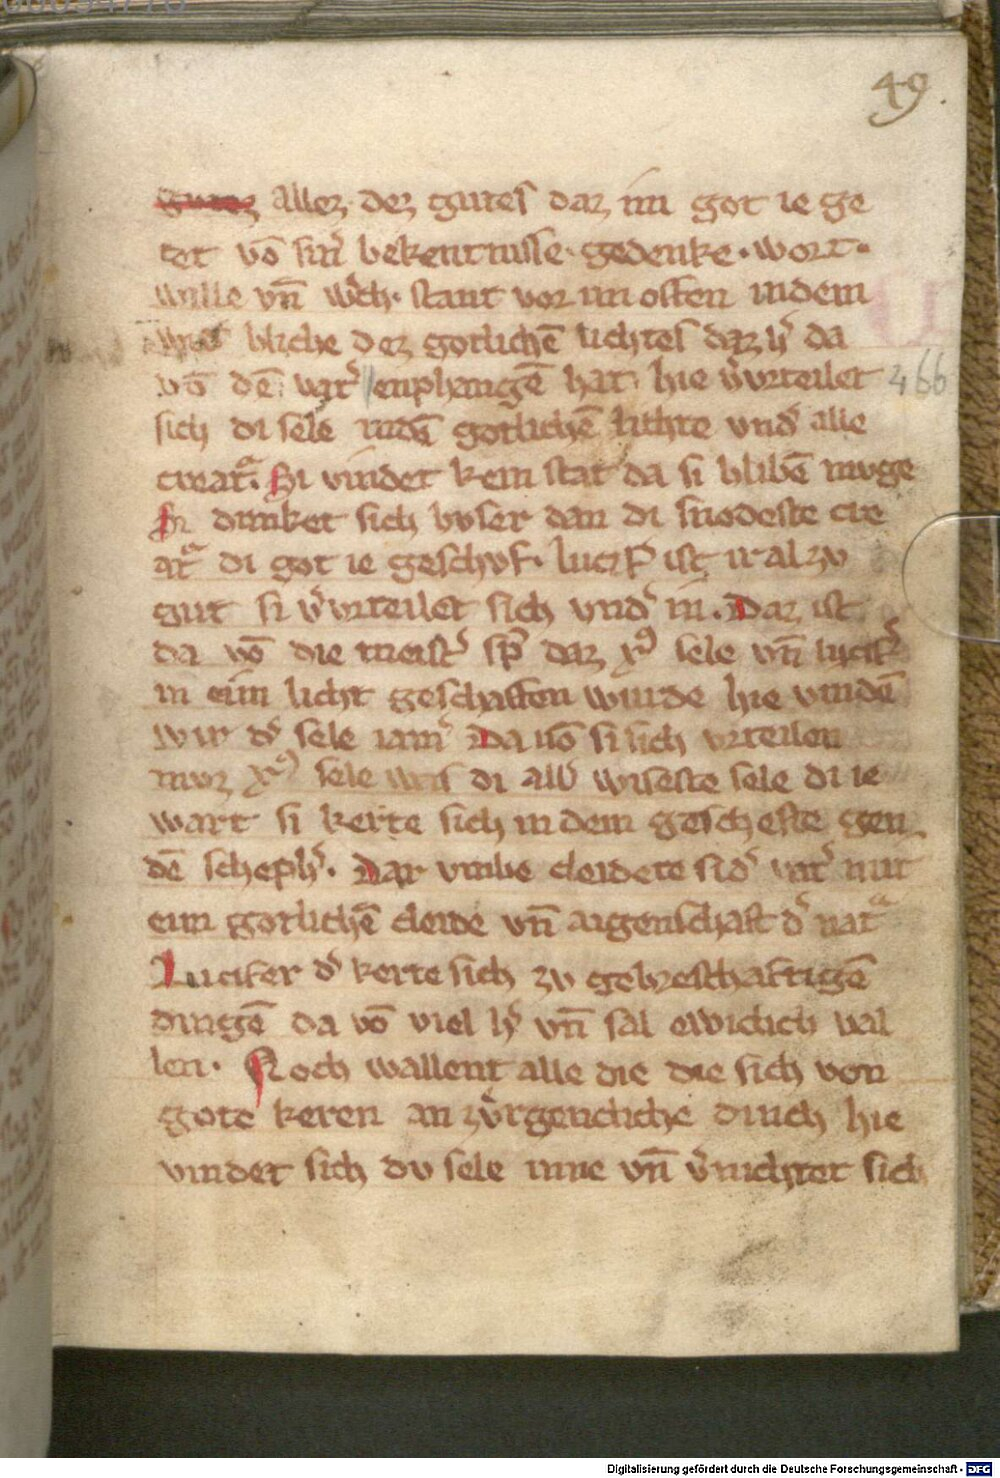 49.
allez dez gutes daz im got ie ge
tet vō sin̄ bekentnisse · gedenke · wort ·
wille vn̄ w̓ch · stant vor im offen indem
blicke dez gotlichē lichtes daz h̓ da
vō dē vat̓ enphangē hat hie v̓vrteilet 466
sich di sele indē gotlichē lichte vnd̓ alle
creat̄ᵃ. Si vindet kein stat da si blibē mvge
Si dunket sich bvser dan di snodeste cre
at̄ᵃ di got ie geschvf · lucif̓ ist ir alzv
gut si v̓vrteilet sich vnd̓ in. Daz ist
da vō die meist̓ sp̄ daz xꝰ sele vn̄ lucif̓
in eim licht geschaffen wurde hie vindē
wir d̓ sele iam̓ Da vō si sich vrteilen
mvz xꝰ sele was di all̓ wiseste sele di ie
wart si kerte sich in dem gescheffte gen
dē scheph̓. Dar vmbe cleidete si d̓ vat̓ mit
eim gotlichē cleide vn̄ aigenschaft d̓ nat̄ᵃ
Lucifer d̓ kerte sich zv gebreschaftigē
dingē da vō viel h̓ vn̄ sal ewiclich val
len · Noch wallent alle die die sich von
gote keren an zv̓rgencliche dinch hie
vindet sich dv sele inne vn̄ v̓nichtet sich
Digitalisierung gefördert durch die Deutsche Forschungsgemeinschaft - DFG